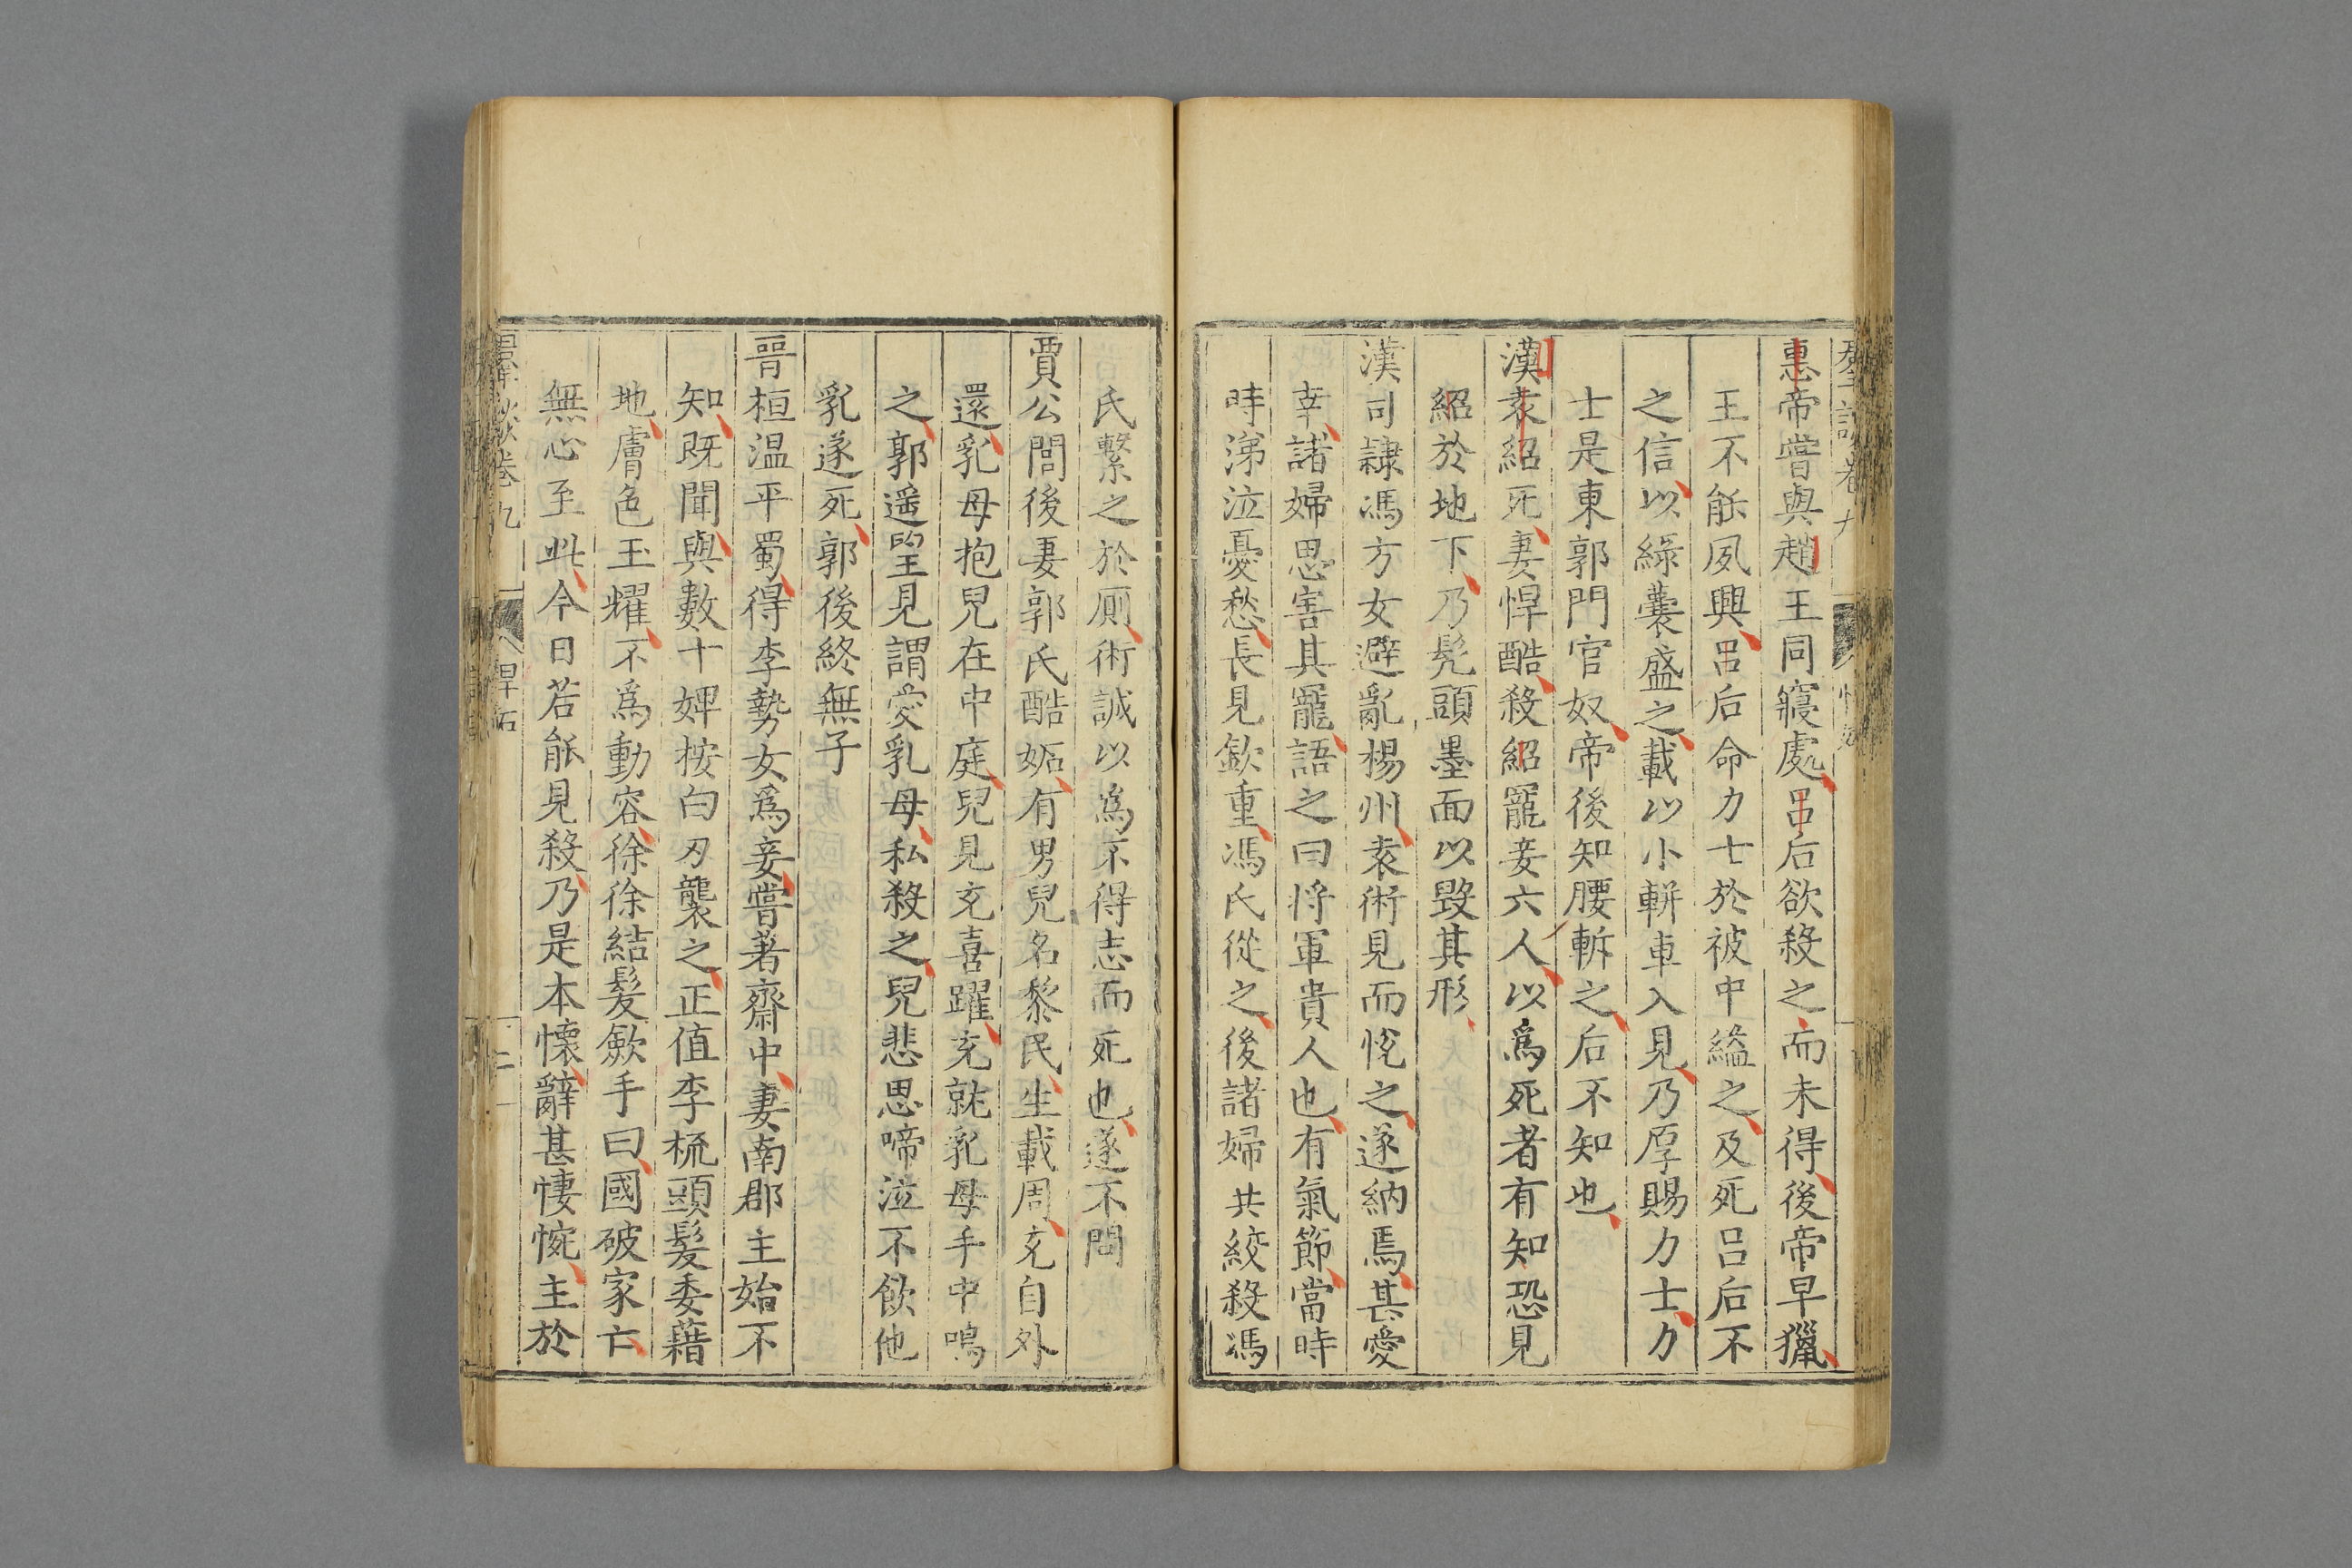 惠帝嘗與趙王同寢處呂后欲殺之而未得後帝早獵
王不能夙興呂后命力士於被中縊之及死呂后不
之信以綠囊盛之載以小軿車入見乃厚賜力士力
士是東郭門官奴帝後知腰斬之后不知也
漢袁紹死妻悍酷殺紹寵妾六人以爲死者有知恐見
紹於地下乃髡頭墨面以毀其形
漢司隷馮方女避亂楊州袁術見而恱之遂納焉甚愛
幸諸婦思害其寵語之曰将軍貴人也有氣節當時
時涕泣憂愁長見欽重馮氏從之後諸婦共絞殺馮
氏繫之於厠術誠以爲不得志而死也遂不問
賈公閭後妻郭氏酷妬有男兒名黎民生載周充自外
還乳母抱兒在中庭兒見充喜躍充就乳母手中嗚
之郭遥望見謂愛乳母私殺之兒悲思啼泣不飲他
乳遂死郭後終無子
晉桓温平蜀得李勢女爲妾嘗著齋中妻南郡主始不
知既聞與數十婢按白刃襲之正值李梳頭髮委藉
地膚色玉耀不爲動容徐徐結髮歛手曰國破家亡
無心至此今日若能見殺乃是本懷辭甚悽惋主於
卷九
二